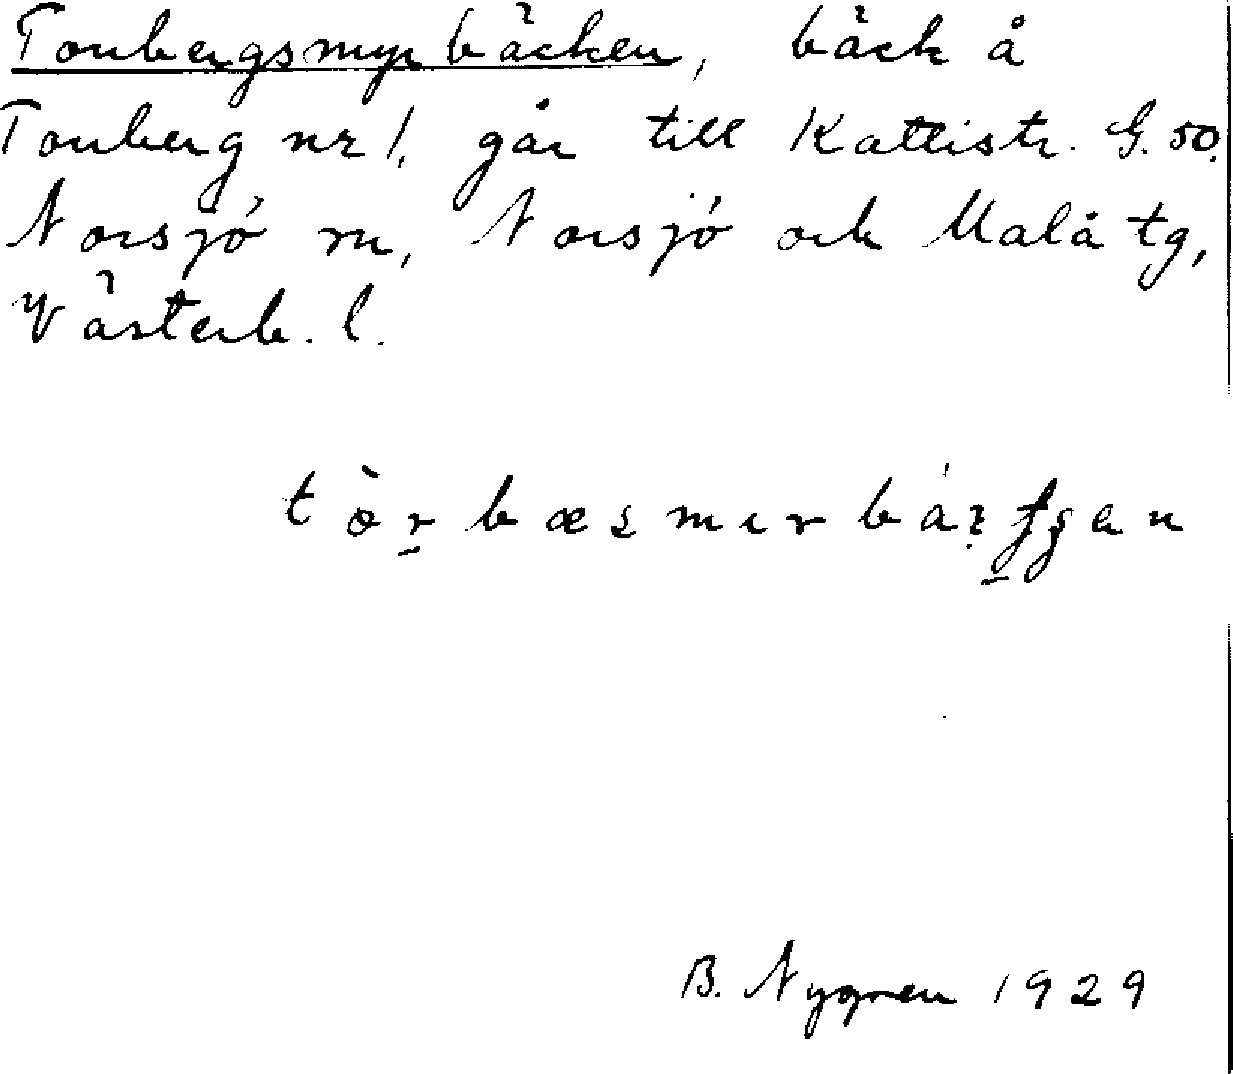 Torrbergsmyrbäcken, bäck å
Torrberg nr 1, går till Kattistr. G. 50.
Norsjö sn, Norsjö och Malå tg,
Västerb. l.
B. Nygren 1929